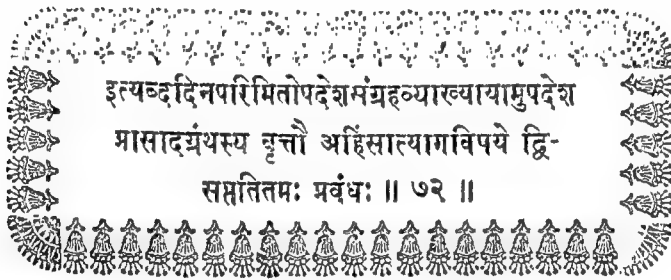 इत्यब्ददिनपरिमितोपदेशसंग्रहव्याख्यायामुपदेश
प्रासादग्रंथस्य वृत्तौ अहिंसात्यागविषये द्वि-
सप्ततितमः प्रबंधः ॥ ७२ ॥